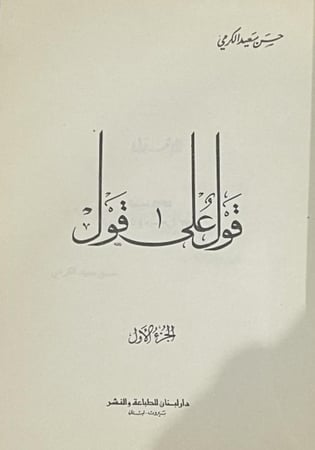 حسن سعيد الكرمي
قول على قول
١
الجزء الأول
دار لبنان للطباعة والنشر
بيروت - لبنان